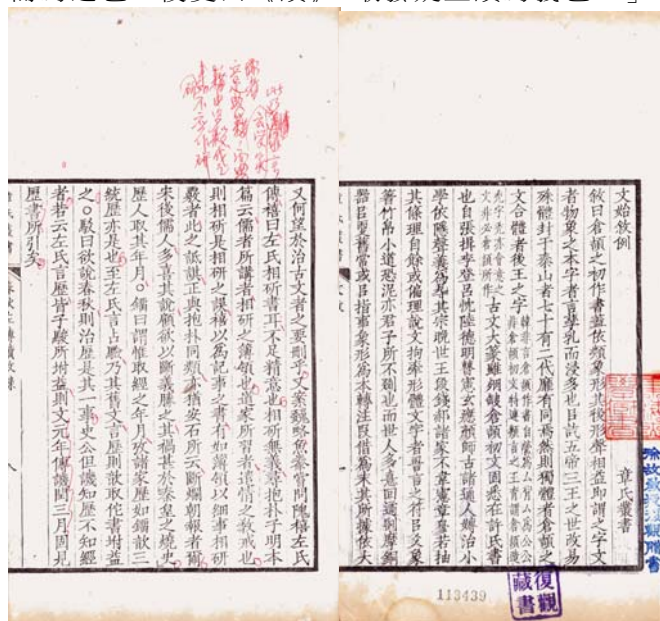 文始敘例
章氏叢書
敘曰倉頡之初作書蓋依類象形其後形聲相益即謂之字文
者物象之本字者言孳乳而浸多也㠯訖五帝三王之世改易
殊體封于泰山者七十有二代靡有同焉然則獨體者倉頡之
文合體者後王之字
古文大篆雖殘缺倉頡初文固悉在許氏書
也自張揖李登呂忱陸德明曹憲玄應顏師古諸通人專治小
學依隱聲義
其宗晚世王段錢郝諸家不韋憲章若抽
其條理自餘或偏理說文拘牽形體文字者詞言之符㠯爻象
箸竹帛小道恐泥亦君子所不剟也而世人多憙回遹剽摩銅
器㠯更舊常或㠯指事象形爲本轉注叚借爲末其所據依大
113439
復觀藏書
又何望於治古文者之要刪乎又案魏略魚豢嘗問隗禧左氏
傳禧曰左氏相斫書耳不足精意也相斫無義尋抱朴子明本
篇云儒者所講者相研之簿領也道家所習者遣情之教戒也
則相斫是相研之誤禧以爲記事之書有如簿領以細事相研
覈者此之詆諆正與抱朴同類亦猶安石所云斷爛朝報者爾
宋後儒人多喜其說顧欲以斷義勝之其禍甚於秦皇之燒史
歷人取其年月○鐂曰謂惟取經之年月攷諸家歷如鐂歆三
統歷亦是也至左氏言占驗乃其舊文言歷則歆取佗書坿益
之○駁曰欲說春秋則治歷是其一事史公但譏知歷不知經
者若云左氏言歷皆子駿所坿益則文元年傳譏閏三月固見
歷書所引矣